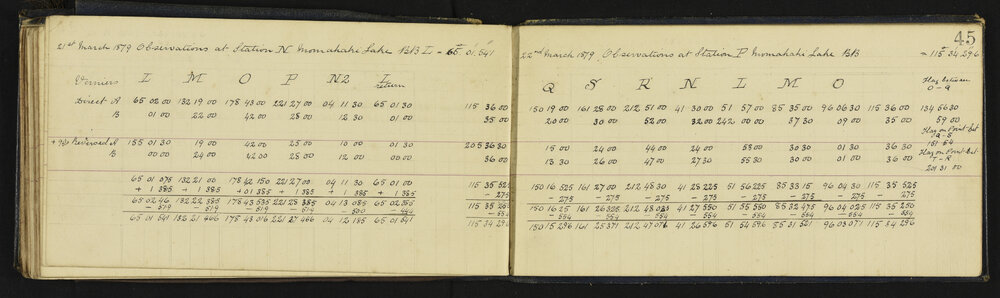 45
21st March 1879 Observations at Station N Momahaki Lake BB L - 65° 01'.541
Verniers L M O P N2 L return
Direct A 65 02 00 132 19 00 178 43 00 221 27 00 04 11 30 65 01 30 115 36 00
B 01 00 22 00 42 00 28 00 12 30 01 00 35 00
+90 Reversed A 155 01 30 19 00 42 00 25 00 10 00 01 30 205 36 30
B 00 00 24 00 42 00 28 00 12 00 00 00 36 00
65 01 075 132 21 00 178 42 150 221 27 00 04 11 30 65 01 00 115 35 525
+ 1 385 + 1 385 + 01 385 + 1 385 + 1 385 + 1 385 - 275
65 02 46 132 22 385 178 43 535 221 28 385 04 13 085 65 02 385 115 35 250
- 519 - 519 - 519 - 519 - 554
65 01 541 178 43 016 221 27 866 04 12 185 65 01 541 115 34 296
22nd March 1879, Observations at Station P Momahaki Lake BB - 115° 34.296
Q S R N L M O
Flag between
O - Q
150 19 00 161 28 00 212 51 00 41 30 00 51 57 00 85 35 00 96 06 30 115 36 00 134 56 30
20 00 30 00 52 00 32 00 242 00 00 37 30 09 00 35 00 59 00
Flag on Point bet
Q - S
15 00 24 00 44 00 24 00 53 00 30 30 01 30 36 30 151 54
13 30 26 00 47 00 27 30 55 30 30 00 01 00 36 00
Flag on Point bet
T - R
201 31 00
150 16 525 161 27 00 212 48 30 41 28 225 51 56 225 85 33 15 96 04 30 115 35 525
- 275 - 275 - 275 - 275 - 275 - 275 - 275 - 275
150 16 25 161 26 325 212 48 025 41 27 550 51 55 550 85 32 475 96 04 025 115 35 250
- 554 - 554 - 554 - 554 - 554 - 554 - 554 - 554
150 15 296 161 25 371 212 47 071 41 26 596 51 54 596 85 31 521 96 03 071 115 34 296